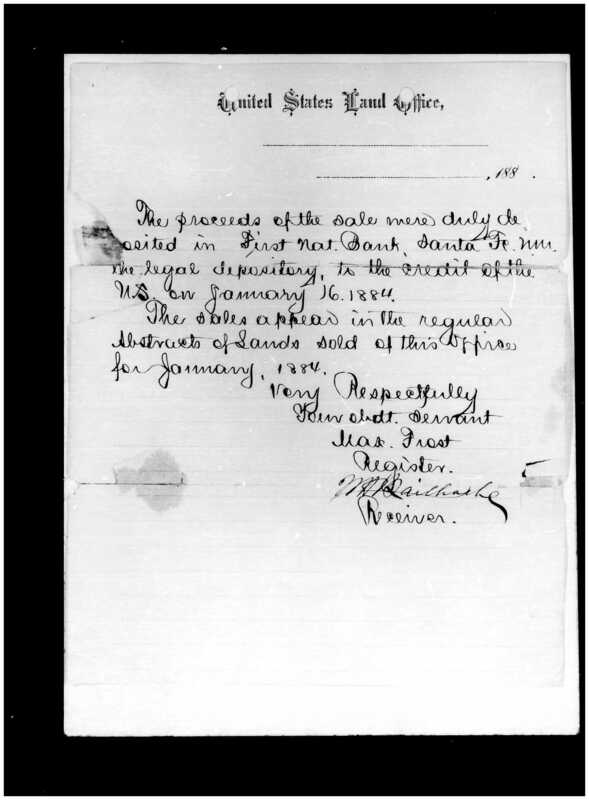 United States Land Office,
, 188 .
The proceeds of the sale were duly de
posited in First Nat. Bank, Santa Fe. N.M.
the legal depository, to the credit of the
U.S. on January 16. 1884.
The sales appear in the regular
Abstracts of Lands sold of this Office
for January, 1884.
Very Respectfully
Your obdt. Servant
Max. Frost
Register.
W.H. Bailhache
Receiver.